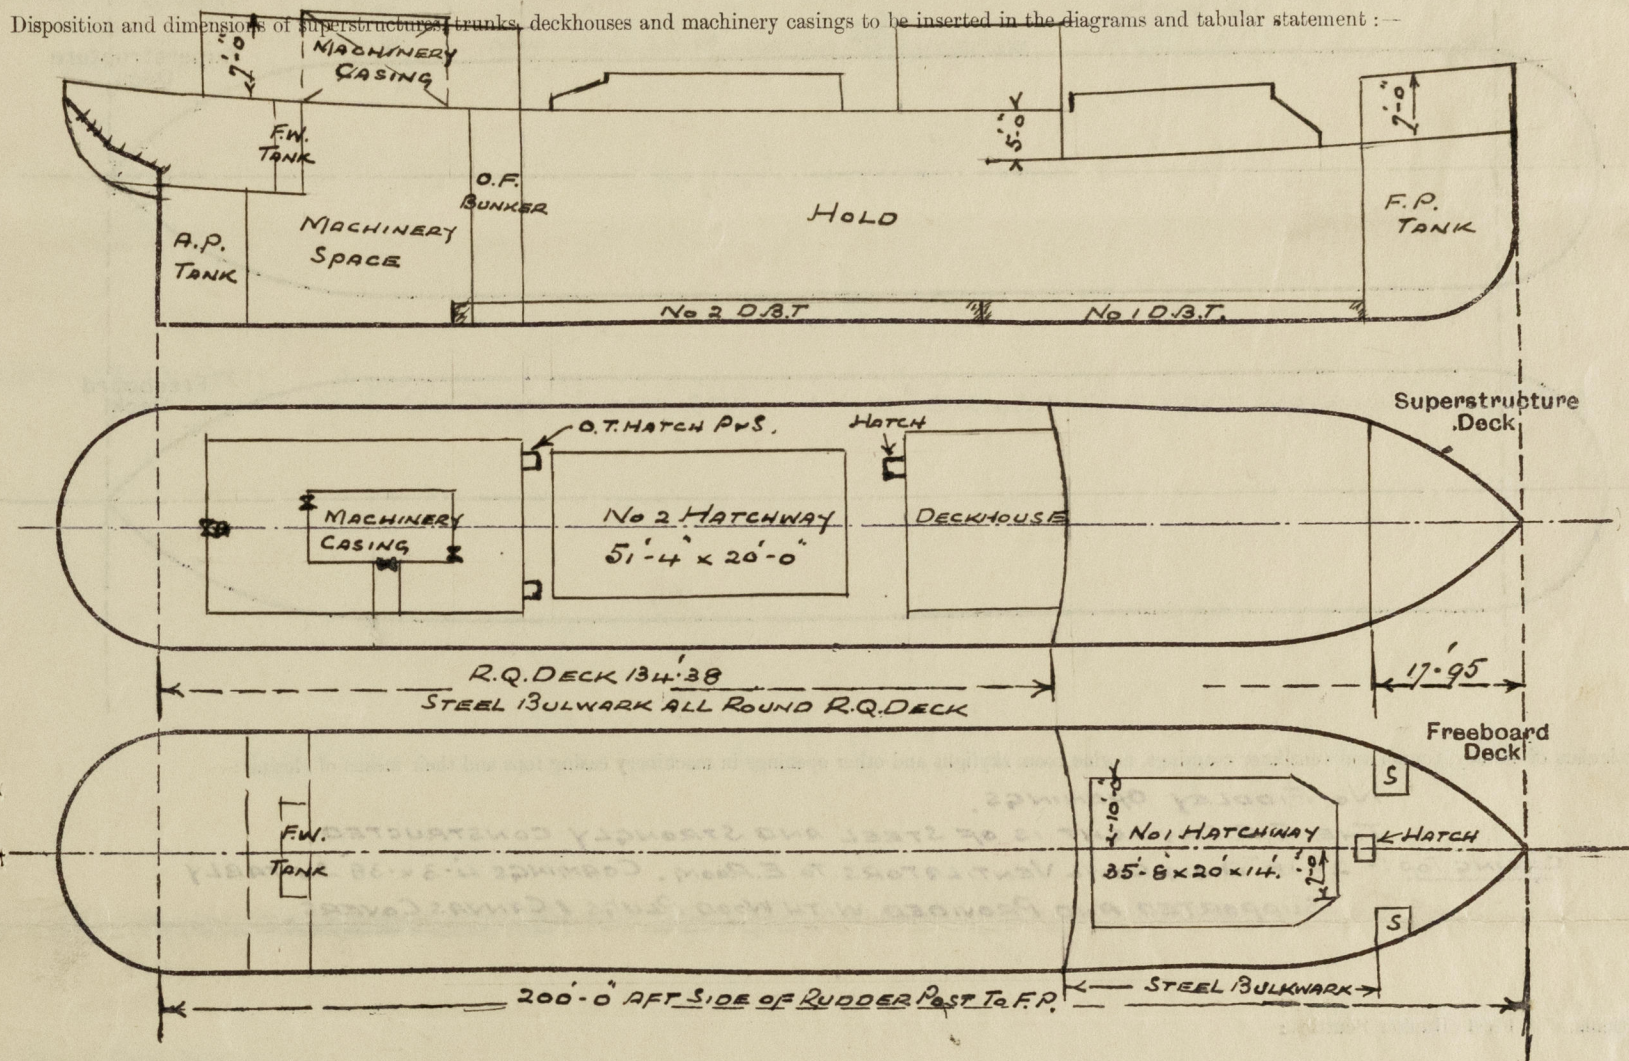 Disposition and dimensions of superstructures, trunks, deckhouses and machinery casings to be inserted in the diagrams and tabular statement :—
7'-0"
MACHINERY
CASING
F.W.
TANK
O.F.
BUNKER
5'-0"
7'-0"
MACHINERY
SPACE
HOLD
F.P.
TANK
A.P.
TANK
No 2 D.B.T
No 1 D.B.T.
Superstructure
Deck
O.T. HATCH P & S.
HATCH
MACHINERY
CASING
No 2 HATCHWAY
51'-4" x 20'-0"
DECKHOUSE
R.Q. DECK 134'.38
17'.95
STEEL BULWARK ALL ROUND R.Q. DECK
Freeboard
Deck
S
10'-0"
F.W.
TANK
No 1 HATCHWAY
HATCH
35'-8 x 20' x 14'.
7'-0"
S
STEEL BULKWARK
200'-0" AFT SIDE OF RUDDER POST TO F.P.